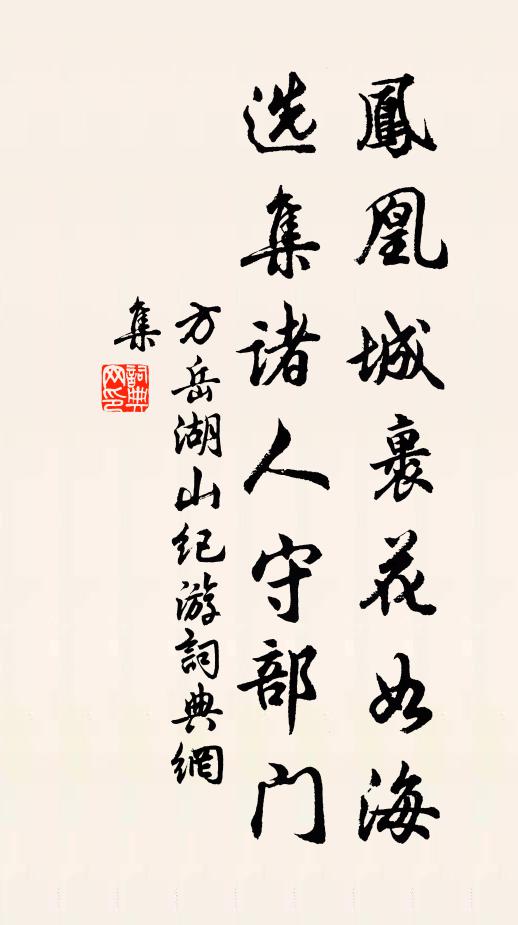 鳳凰城裹花如海
选集诸人守部门
方岳湖山纪游詞典網
集
詞典
网印